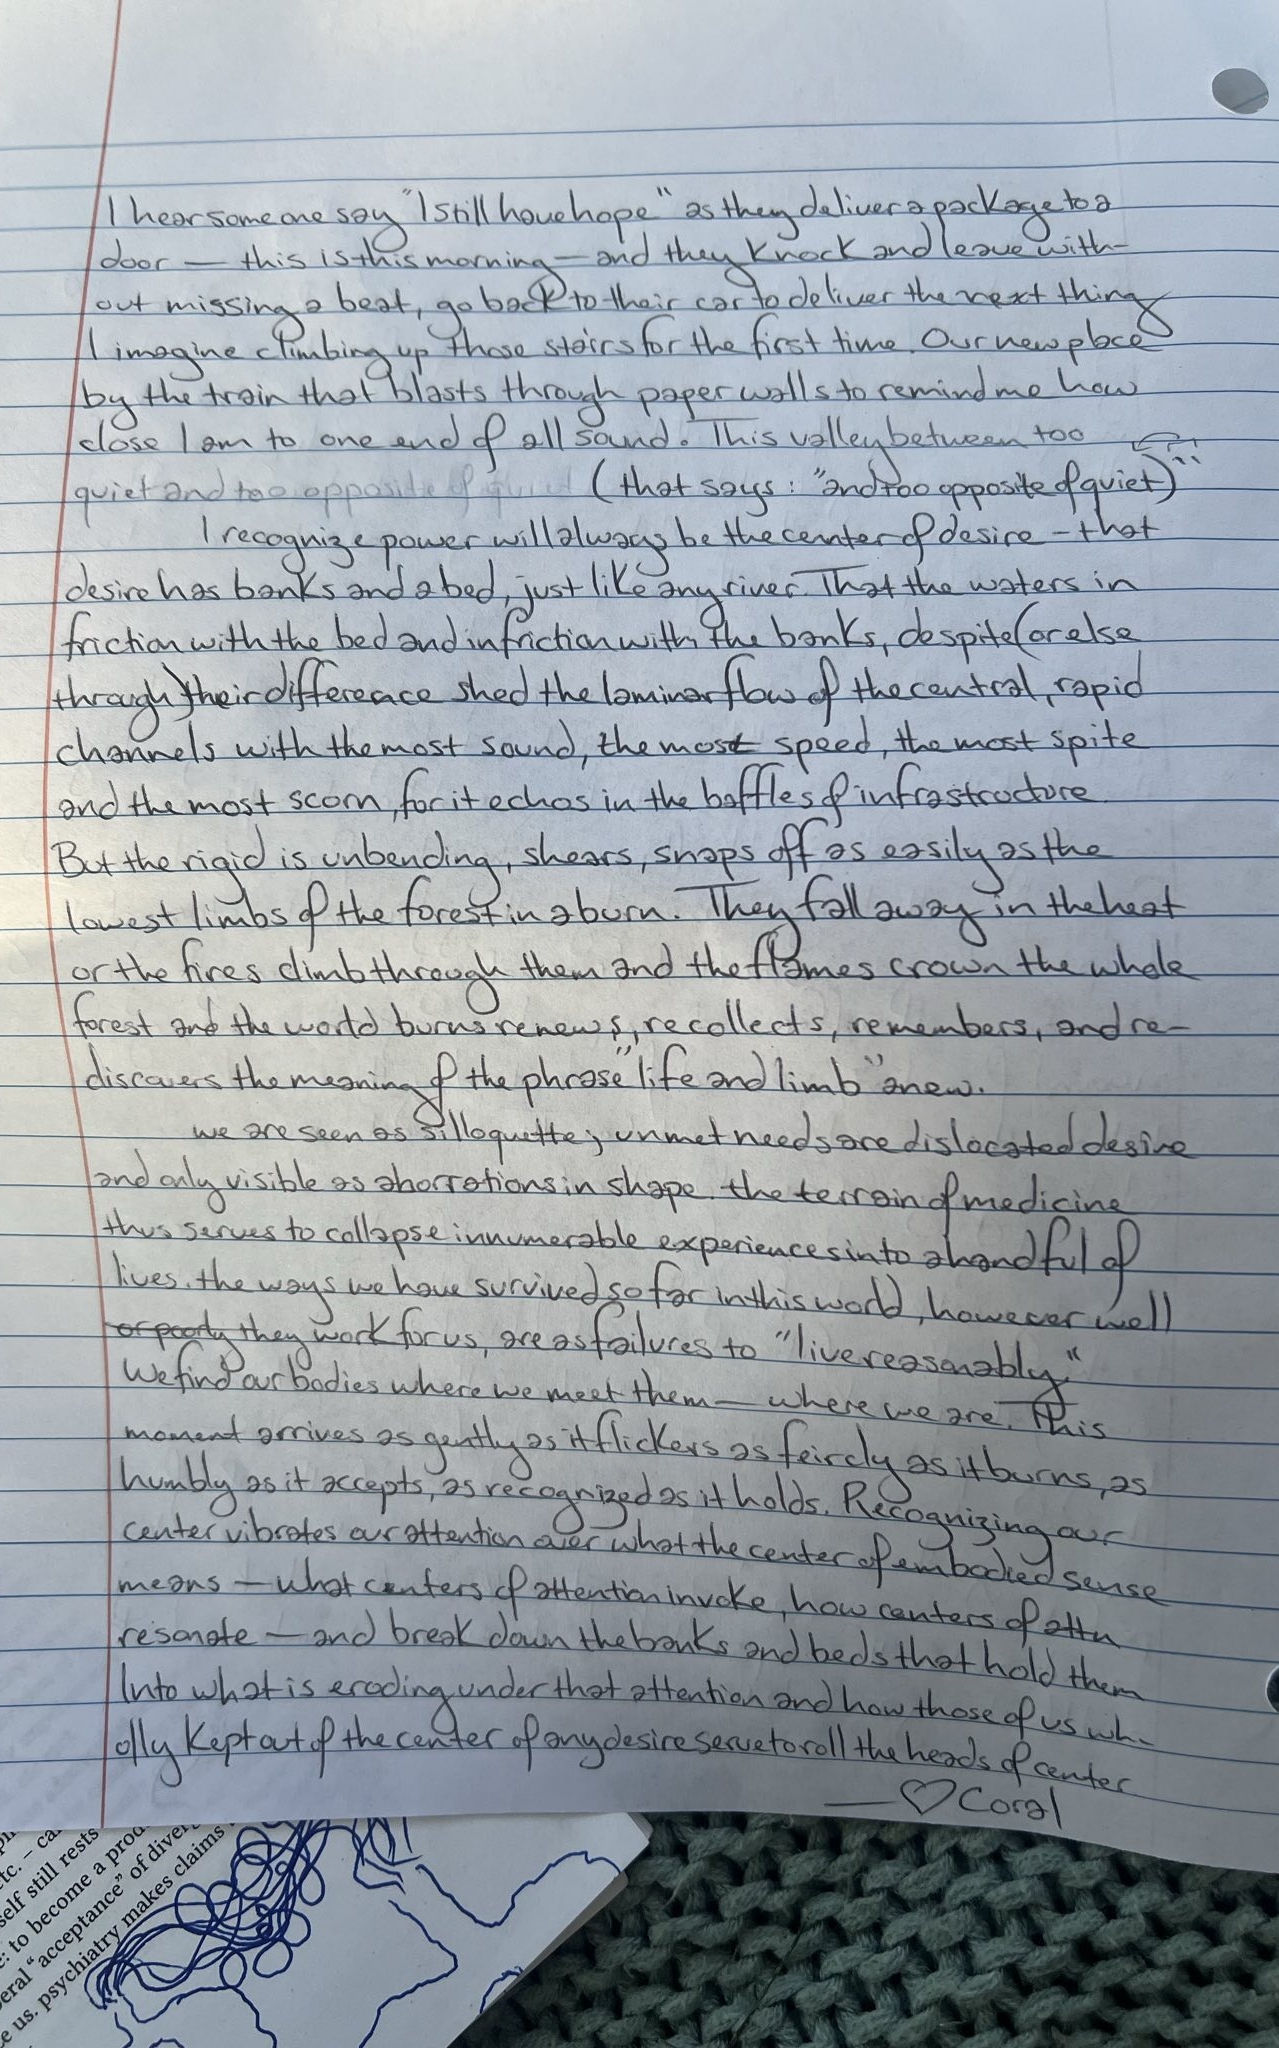 I hear someone say "I still have hope" as they deliver a package to a
door — this is this morning — and they knock and leave with-
out missing a beat, go back to their car to deliver the next thing
I imagine climbing up those stairs for the first time. Our new place
by the train that blasts through paper walls to remind me how
close I am to one end of all sound. This valley between too
quiet and too opposite of quiet (that says: "and too opposite of quiet")
I recognize power will always be the center of desire - that
desire has banks and a bed, just like any river. That the waters in
friction with the bed and in friction with the banks, despite (or else
through) their difference shed the laminar flow of the central, rapid
channels with the most sound, the most speed, the most spite
and the most scorn, for it echos in the baffles of infrastructure
But the rigid is unbending, shears, snaps off as easily as the
lowest limbs of the forest in a burn. They fall away in the heat
or the fires climb through them and the flames crown the whole
forest and the world burns renews, recollects, remembers, and re-
discovers the meaning of the phrase "life and limb" anew.
we are seen as silloquette; unmet needs are dislocated desire
and only visible as aborrations in shape. the terrain of medicine
thus serves to collapse innumerable experiences into a handful of
lives. the ways we have survived so far in this world, however well
or poorly they work for us, are as failures to "live reasonably"
We find our bodies where we meet them — where we are. This
moment arrives as gently as it flickers as feircly as it burns, as
humbly as it accepts, as recognized as it holds. Recognizing our
center vibrates our attention over what the center of embodied sense
means — what centers of attention invoke, how centers of attn
resonate — and break down the banks and beds that hold them
Into what is eroding under that attention and how those of us wh-
olly kept out of the center of any desire serve to roll the heads of center
— ♡ Coral
etc. – ca
self still rests
to become a prod
eral "acceptance" of diver
e us. psychiatry makes claims